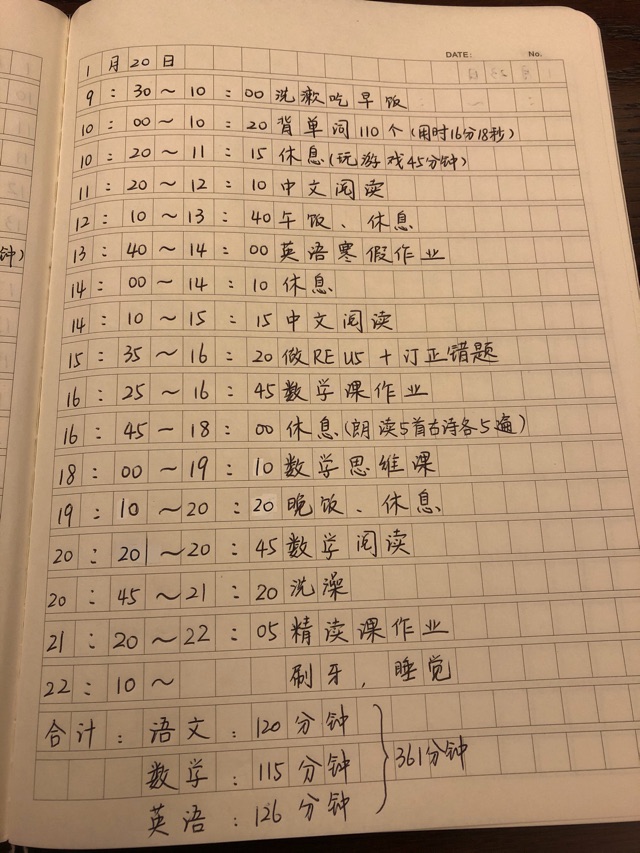 DATE: No.
1月20日
9:30～10:00洗漱吃早饭
10:00～10:20背单词110个(用时16分18秒)
10:20～11:15休息(玩游戏45分钟)
11:20～12:10中文阅读
12:10～13:40午饭、休息
13:40～14:00英语寒假作业
14:00～14:10休息
14:10～15:15中文阅读
15:35～16:20做RE U5+订正错题
16:25～16:45数学课作业
16:45～18:00休息(朗读5首古诗各5遍)
18:00～19:10数学思维课
19:10～20:20晚饭、休息
20:20～20:45数学阅读
20:45～21:20洗澡
21:20～22:05精读课作业
22:10～刷牙,睡觉
合计:语文:120分钟
数学:115分钟 361分钟
英语:126分钟
钟)